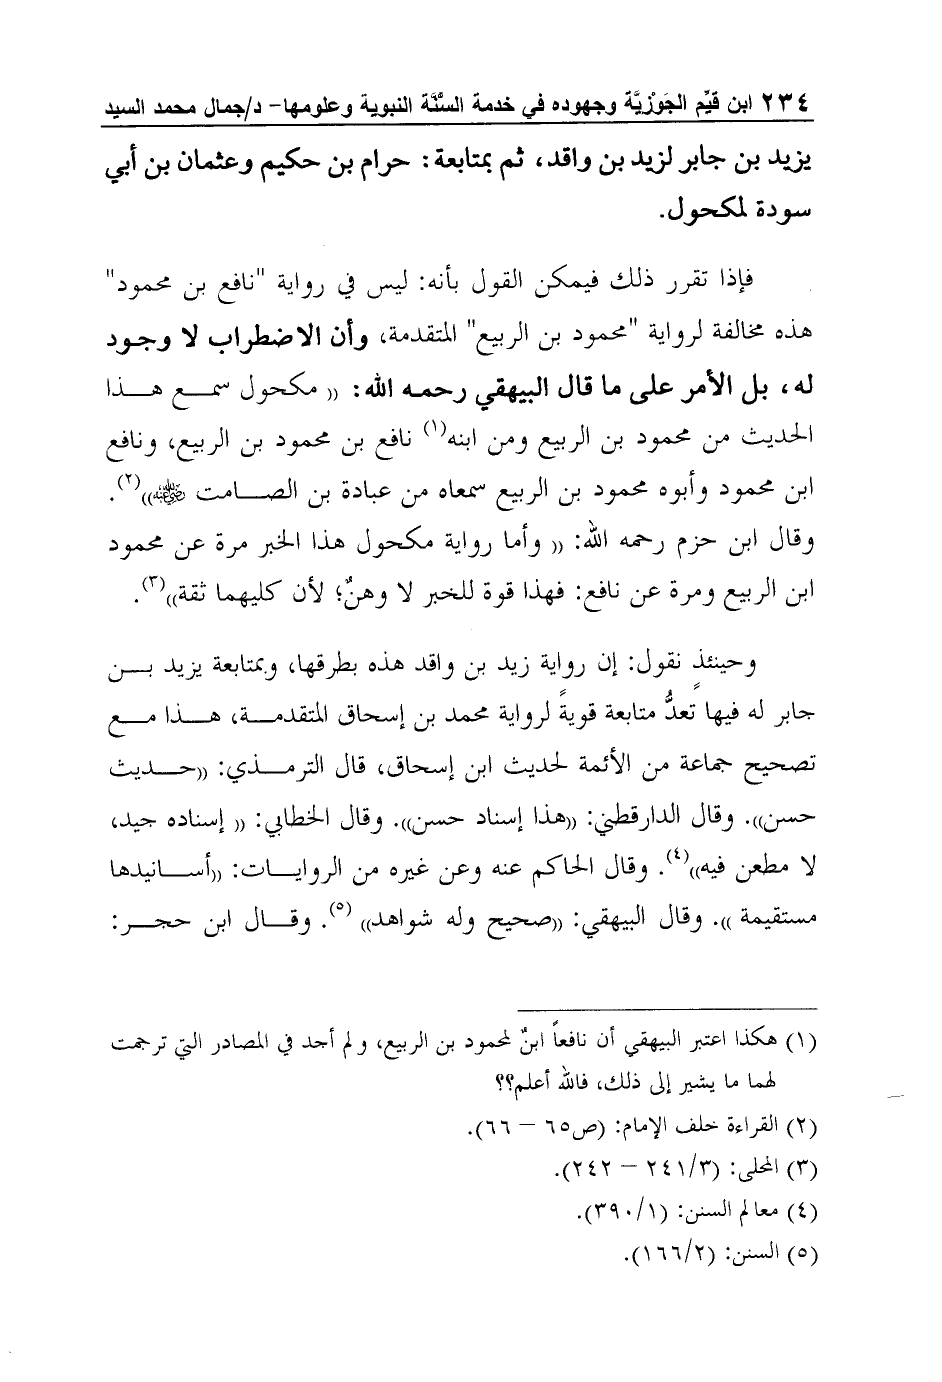 ٢٣٤ ابن قيِّم الجَوْزيَّة وجهوده في خدمة السُّنَّة النبوية وعلومها- د/جمال محمد السيد
يزيد بن جابر لزيد بن واقد، ثم بمتابعة: حرام بن حكيم وعثمان بن أبي
سودة لمكحول.
فإذا تقرر ذلك فيمكن القول بأنه: ليس في رواية "نافع بن محمود"
هذه مخالفة لرواية "محمود بن الربيع" المتقدمة، وأن الاضطراب لا وجود
له، بل الأمر على ما قال البيهقي رحمه الله: (( مكحول سمع هذا
الحديث من محمود بن الربيع ومن ابنه(١) نافع بن محمود بن الربيع، ونافع
ابن محمود وأبوه محمود بن الربيع سمعاه من عبادة بن الصامت ﷺ))(٢).
وقال ابن حزم رحمه الله: (( وأما رواية مكحول هذا الخبر مرة عن محمود
ابن الربيع ومرة عن نافع: فهذا قوة للخبر لا وهنٌ؛ لأن كليهما ثقة))(٣).
وحينئذٍ نقول: إن رواية زيد بن واقد هذه بطرقها، وبمتابعة يزيد بن
جابر له فيها تعدُّ متابعة قويةً لرواية محمد بن إسحاق المتقدمة، هذا مع
تصحيح جماعة من الأئمة لحديث ابن إسحاق، قال الترمذي: ((حديث
حسن)). وقال الدارقطني: ((هذا إسناد حسن)). وقال الخطابي: (( إسناده جيد،
لا مطعن فيه))(٤). وقال الحاكم عنه وعن غيره من الروايات: ((أسانيدها
مستقيمة )). وقال البيهقي: ((صحيح وله شواهد)) (٥). وقال ابن حجر:
(١) هكذا اعتبر البيهقي أن نافعاً ابنٌ لمحمود بن الربيع، ولم أجد في المصادر التي ترجمت
لهما ما يشير إلى ذلك، فالله أعلم؟؟
(٢) القراءة خلف الإمام: (ص٦٥ – ٦٦).
(٣) المحلى: (٢٤١/٣ – ٢٤٢).
(٤) معالم السنن: (٣٩٠/١).
(٥) السنن: (١٦٦/٢).